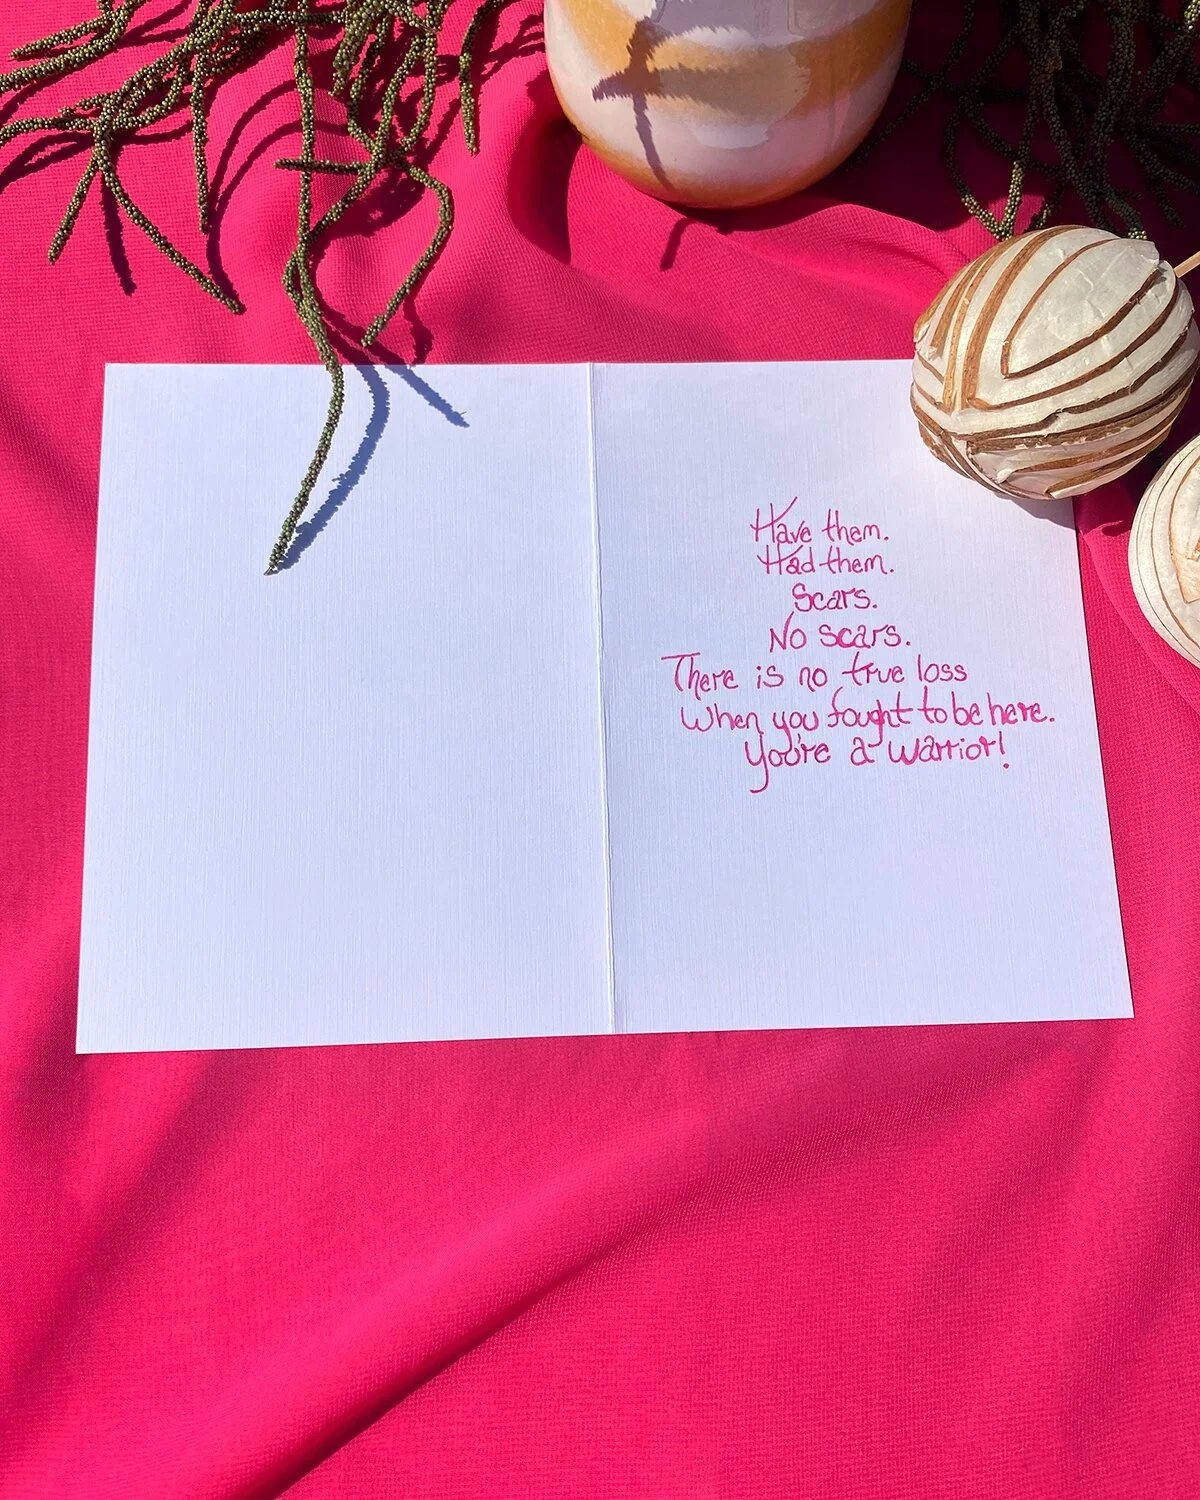 Have them.
Had them.
Scars.
No scars.
There is no true loss
When you fought to be here.
You're a warrior!